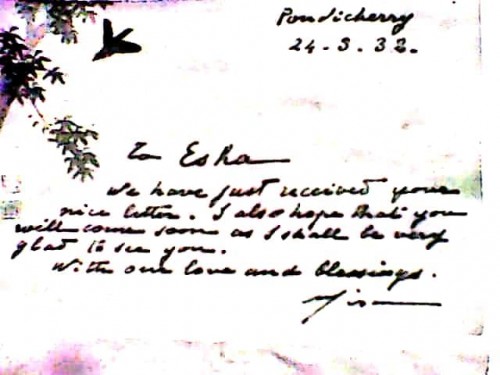 Pondicherry
24-3-32.
To Esha
We have just received your
nice letter. I also hope that you
will come soon as I shall be very
glad to see you.
With our love and blessings.